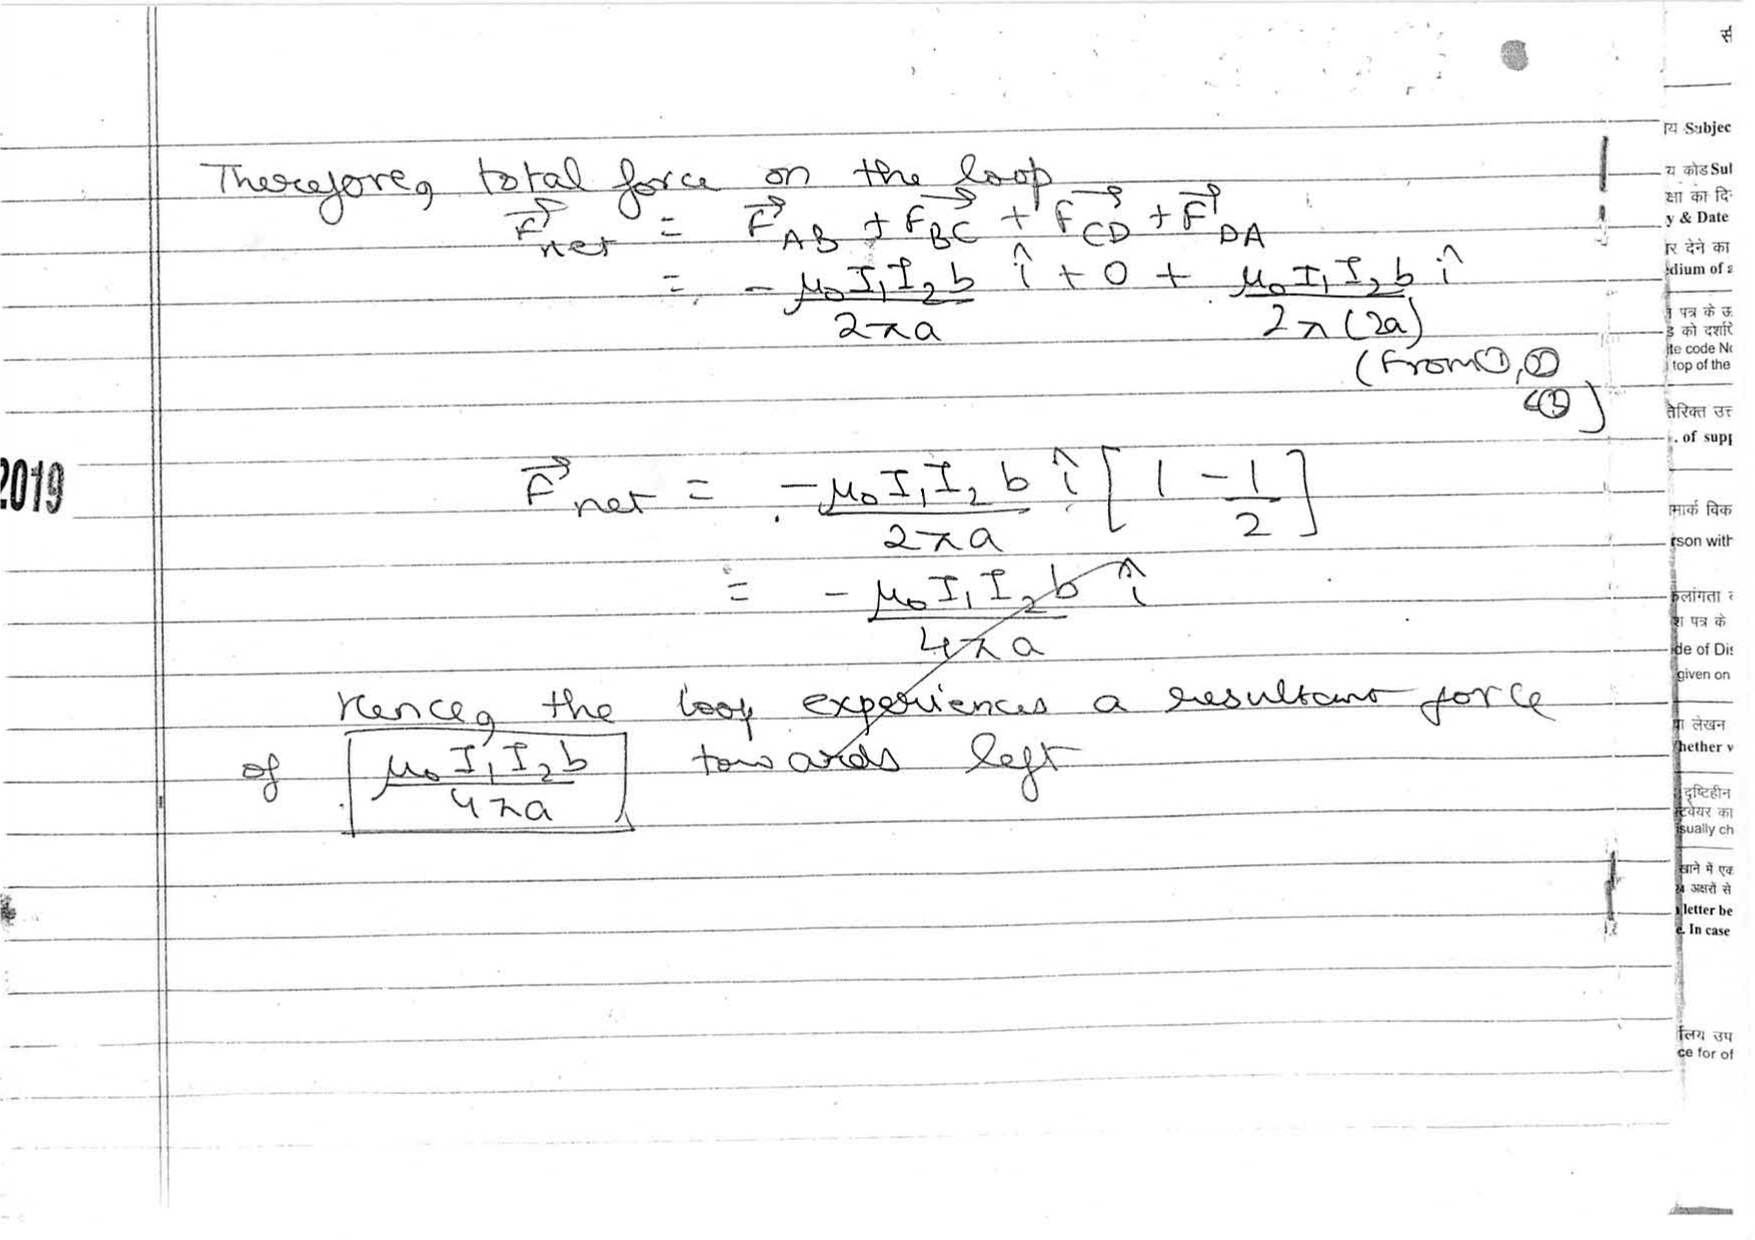 Therefore, total force on the loop
F⃗net = F⃗AB + F⃗BC + F⃗CD + F⃗DA
= - μ₀I₁I₂b/2πa î + 0 + μ₀I₁I₂b/2π(2a) î
(From ①, ②
& ③)
F⃗net = - μ₀I₁I₂b/2πa î [1 - 1/2]
= - μ₀I₁I₂b/4πa î
Hence, the loop experiences a resultant force
of μ₀I₁I₂b/4πa towards left
2019
य Subjec
य कोड Sul
y & Date
र देने का
dium of
पत्र के
को दर्शा
te code N
top of the
तिरिक्त उत्त
. of supp
मार्क विक
rson with
लांगता
पत्र के
de of Dis
given on
लेखन
hether
दृष्टिहीन
sually ch
खाने में एक
अक्षरों से
letter be
. In case
ce for of